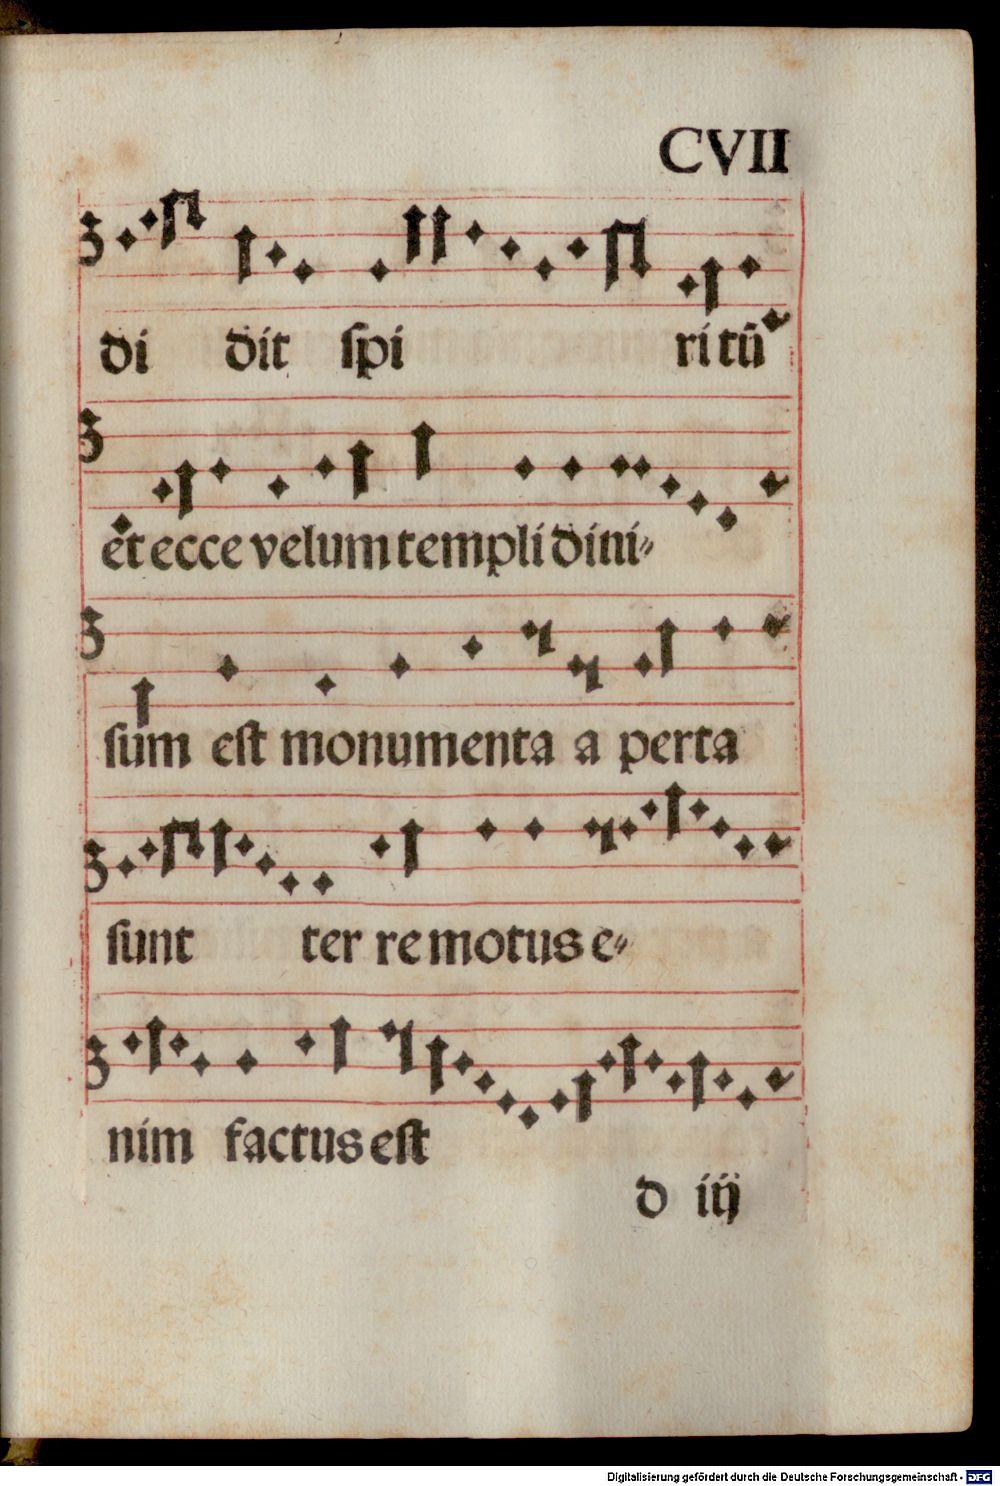 CVII
di dit spi ri tū
et ecce velum templi dini-
sum est monumenta a perta
sunt ter re motus e-
nim factus est
d iij
Digitalisierung gefördert durch die Deutsche Forschungsgemeinschaft - DFG